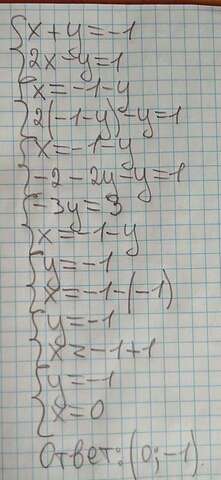 {x + y = -1
{2x - y = 1
{x = -1 - y
{2(-1 - y) - y = 1
{x = -1 - y
{-2 - 2y - y = 1
{-3y = 3
{x = -1 - y
{y = -1
{x = -1 - (-1)
{y = -1
{x = -1 + 1
{y = -1
{x = 0
Ответ: (0; -1)